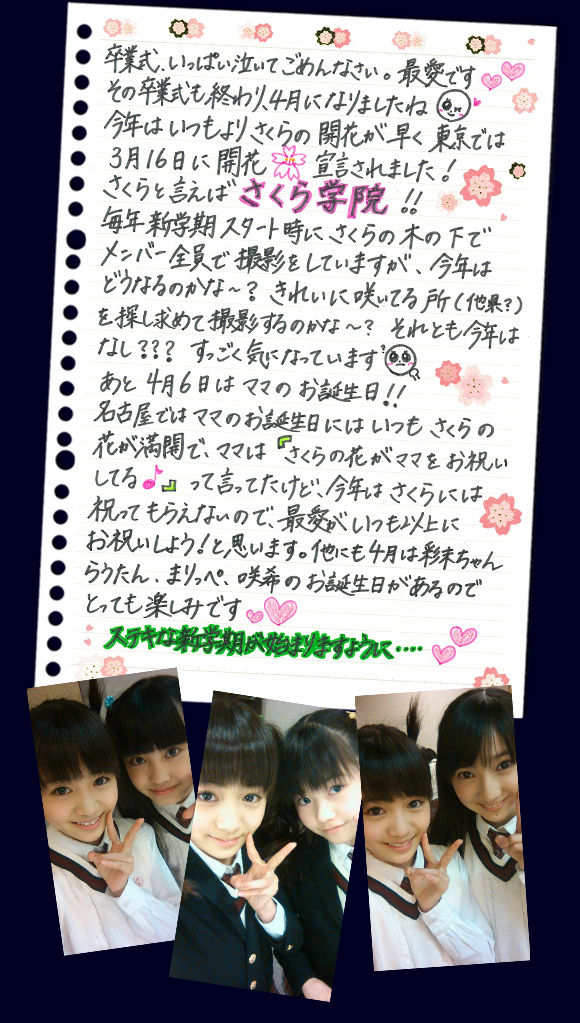 卒業式、いっぱい泣いてごめんなさい。最愛です
その卒業式も終わり、4月になりましたね
今年はいつもよりさくらの開花が早く東京では
3月16日に開花 宣言されました!
さくらと言えば さくら学院 !!
毎年新学期スタート時にさくらの木の下で
メンバー全員で撮影をしていますが、今年は
どうなるのかな~?きれいに咲いてる所(他県?)
を探し求めて撮影するのかな~?それとも今年は
なし???すっごく気になっています
あと4月6日はママのお誕生日!!
名古屋ではママのお誕生日にはいつもさくらの
花が満開で、ママは『さくらの花がママをお祝い
してる♪』って言ってたけど、今年はさくらには
祝ってもらえないので、最愛がいつも以上に
お祝いしよう!と思います。他にも4月は彩未ちゃん
らうたん、まりっぺ、咲希のお誕生日があるので
とっても楽しみです
ステキな新学期が始まりますように‥‥